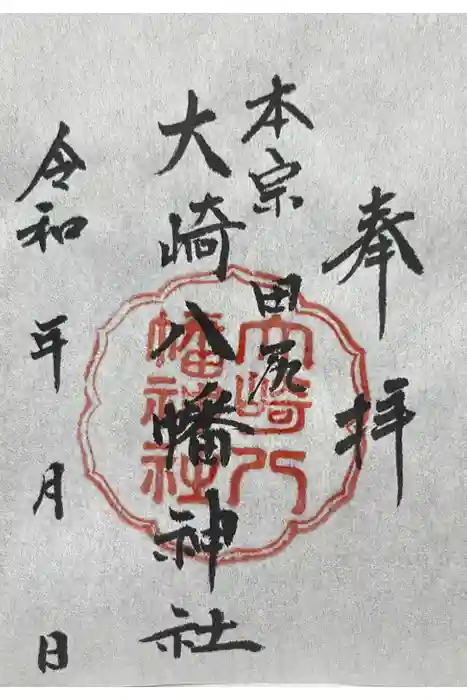 奉拝
本宗 田尻
大崎八幡神社
令和 年 月 日
大崎八
幡神社